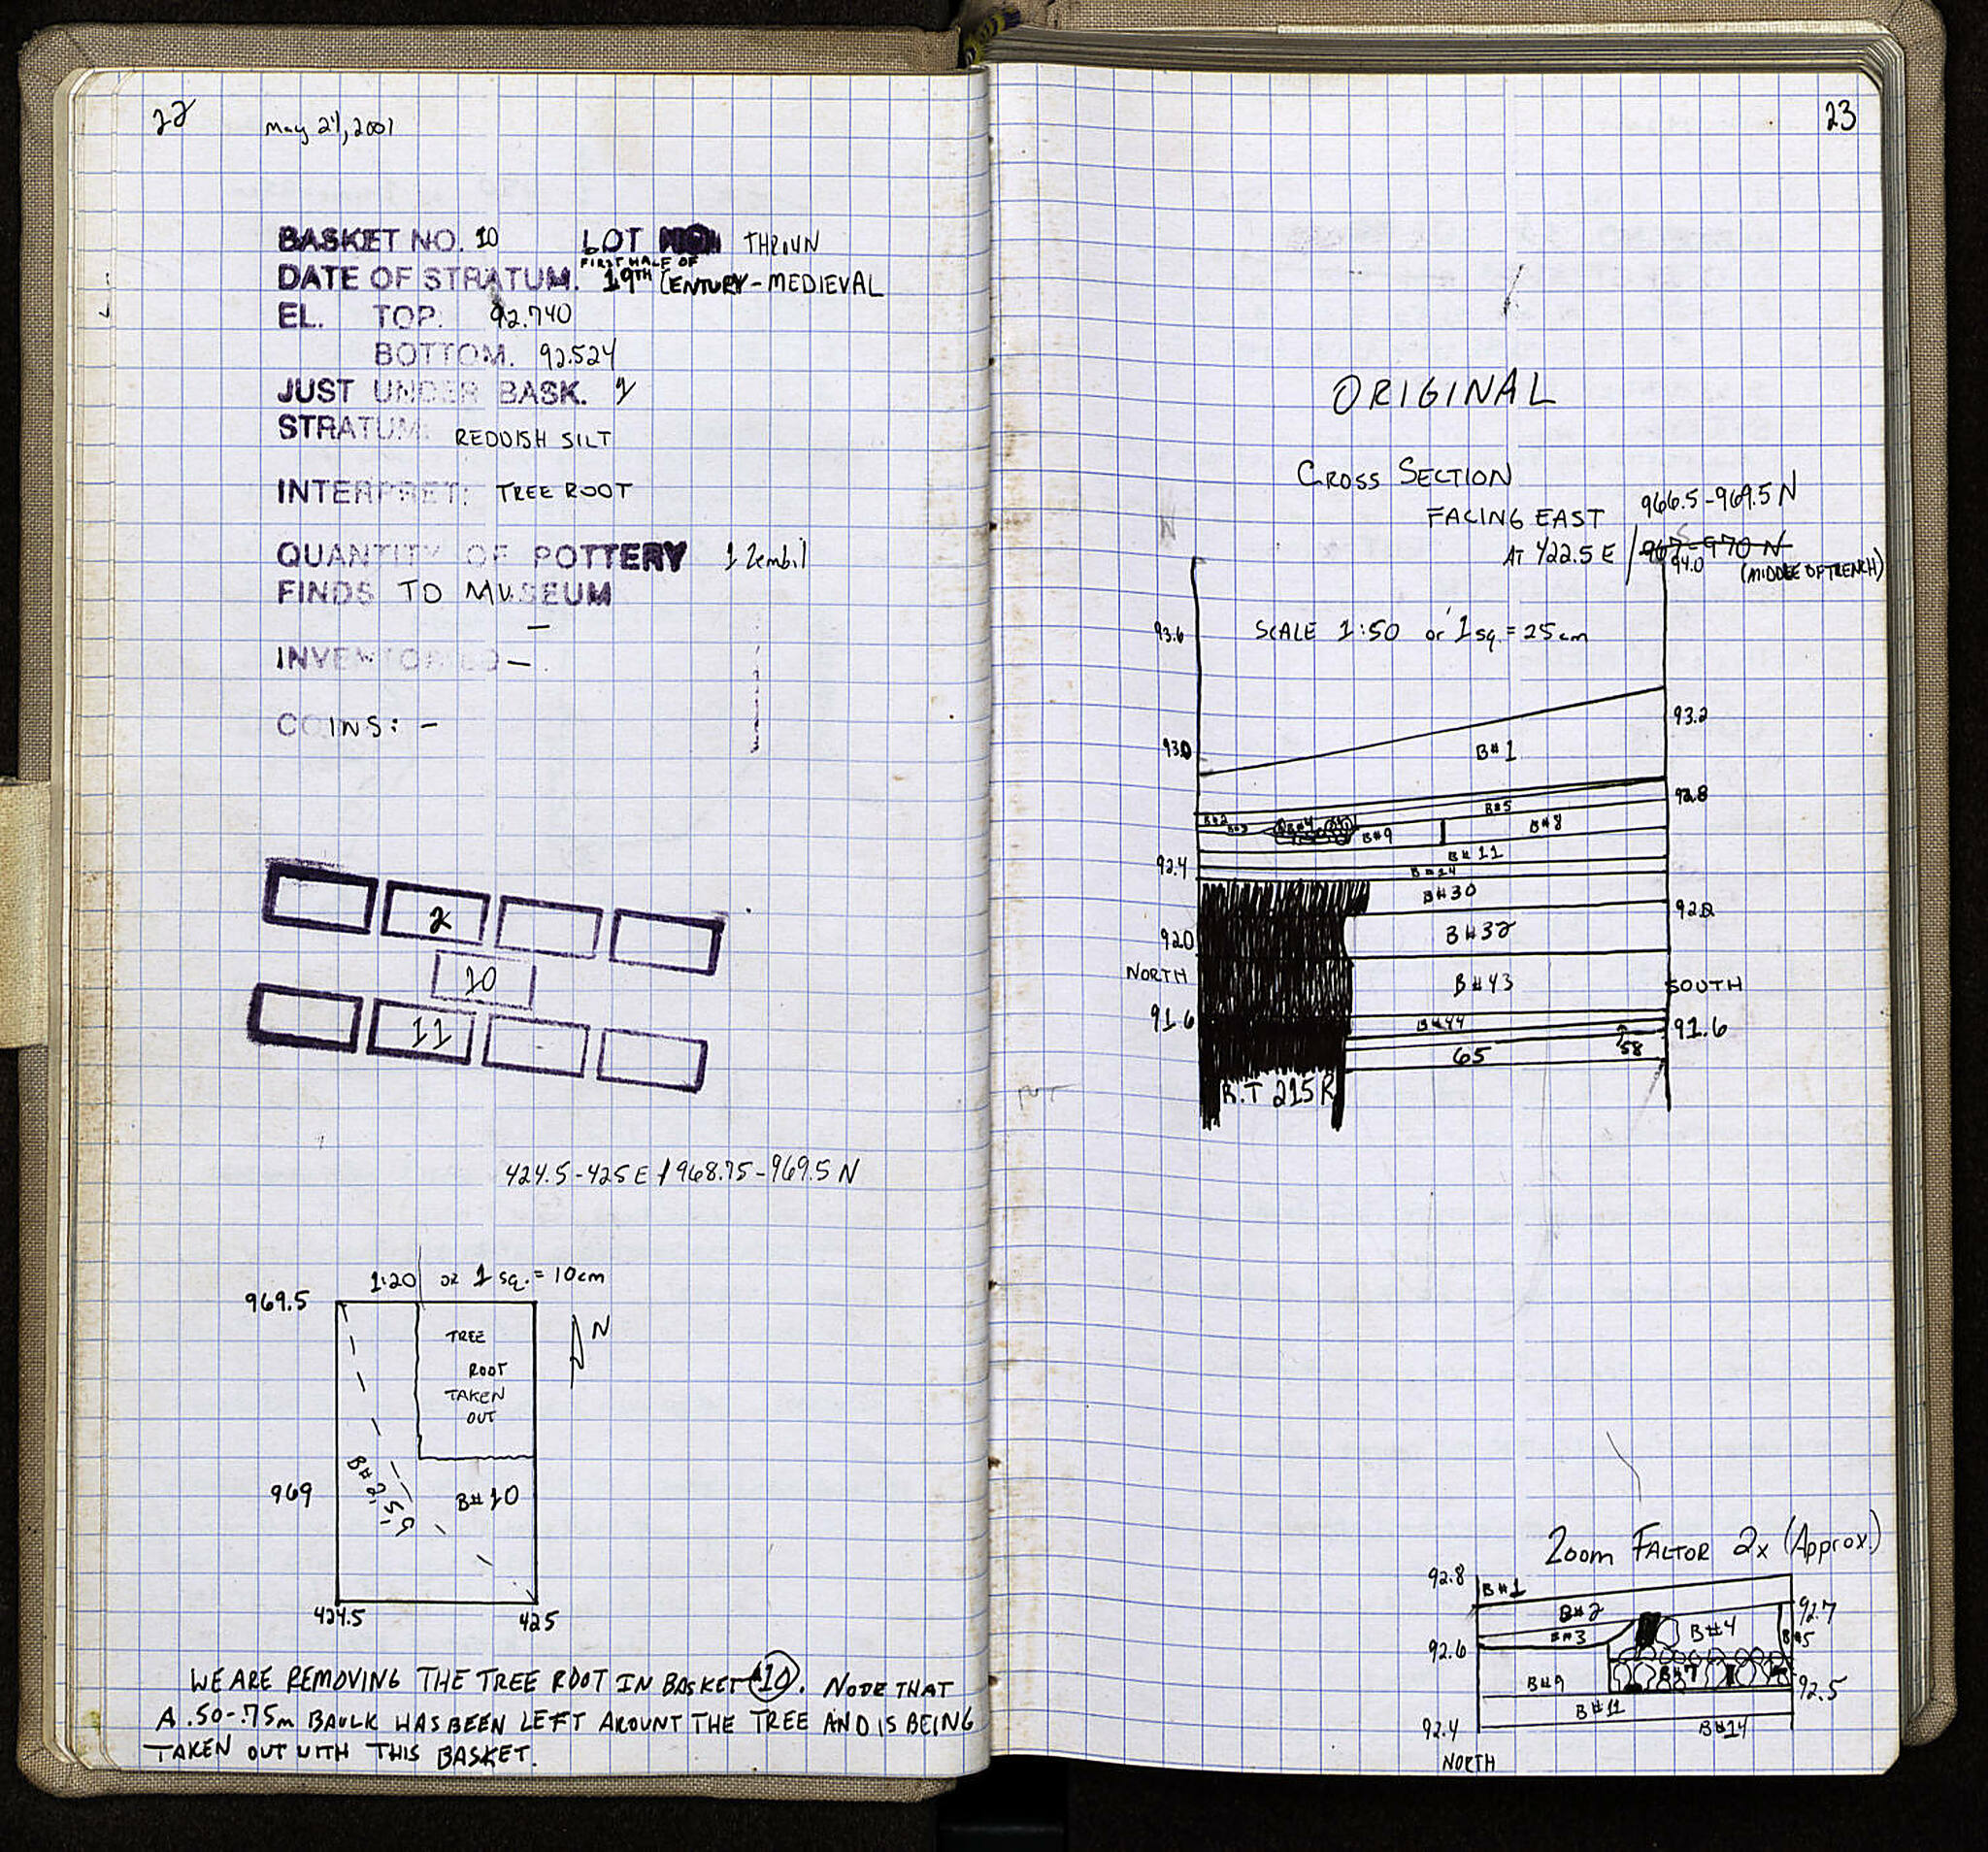 22
May 21, 2001
BASKET NO. 10 LOT THROWN
FIRST HALF OF
DATE OF STRATUM. 19TH CENTURY - MEDIEVAL
EL. TOP. 92.740
BOTTOM. 92.524
JUST UNDER BASK. 2
STRATUM: REDDISH SILT
INTERPRET: TREE ROOT
QUANTITY OF POTTERY 1 Zembil
FINDS TO MUSEUM
—
INVENTORIED —
COINS: -
2
10
11
424.5-425 E / 968.75-969.5 N
1:20 or 1 sq. = 10cm
969.5
N
TREE
ROOT
TAKEN
OUT
969
B# 2, 5, 9
B# 10
424.5
425
WE ARE REMOVING THE TREE ROOT IN BASKET 10. NOTE THAT
A .50-.75m BAULK HAS BEEN LEFT AROUNT THE TREE AND IS BEING
TAKEN OUT WITH THIS BASKET.
23
ORIGINAL
CROSS SECTION
FACING EAST 966.5-969.5 N
AT 422.5 E / 967-970 N
94.0 (MIDDLE OF TRENCH)
93.6
SCALE 1:50 or 1 sq. = 25cm
93.2
93.0
B# 1
92.8
B#5
B#2
B#3
B#4
B#9
B#8
B# 11
92.4
B#14
B#30
92.2
B#32
92.0
NORTH
B#43
SOUTH
91.6
B#44
91.6
58
65
R.T 215 R
Zoom FACTOR 2x (Approx.)
92.8
B#1
B#2
92.7
B#3
B#4
B#5
92.6
B#7
B#9
92.5
B#11
92.4
B#14
NORTH